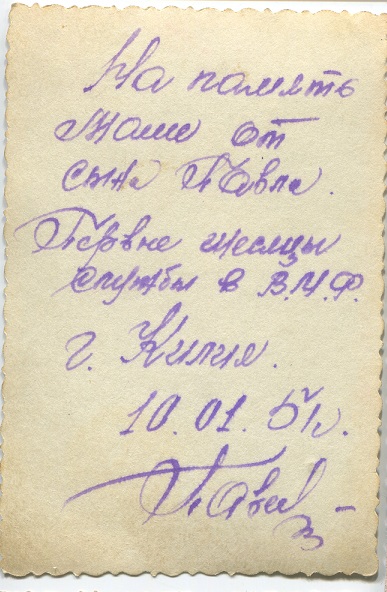 На память
Маме от
сына Павла.
Первые месяцы
службы в В.М.Ф.
г. Килия.
10.01.51г.
Павел